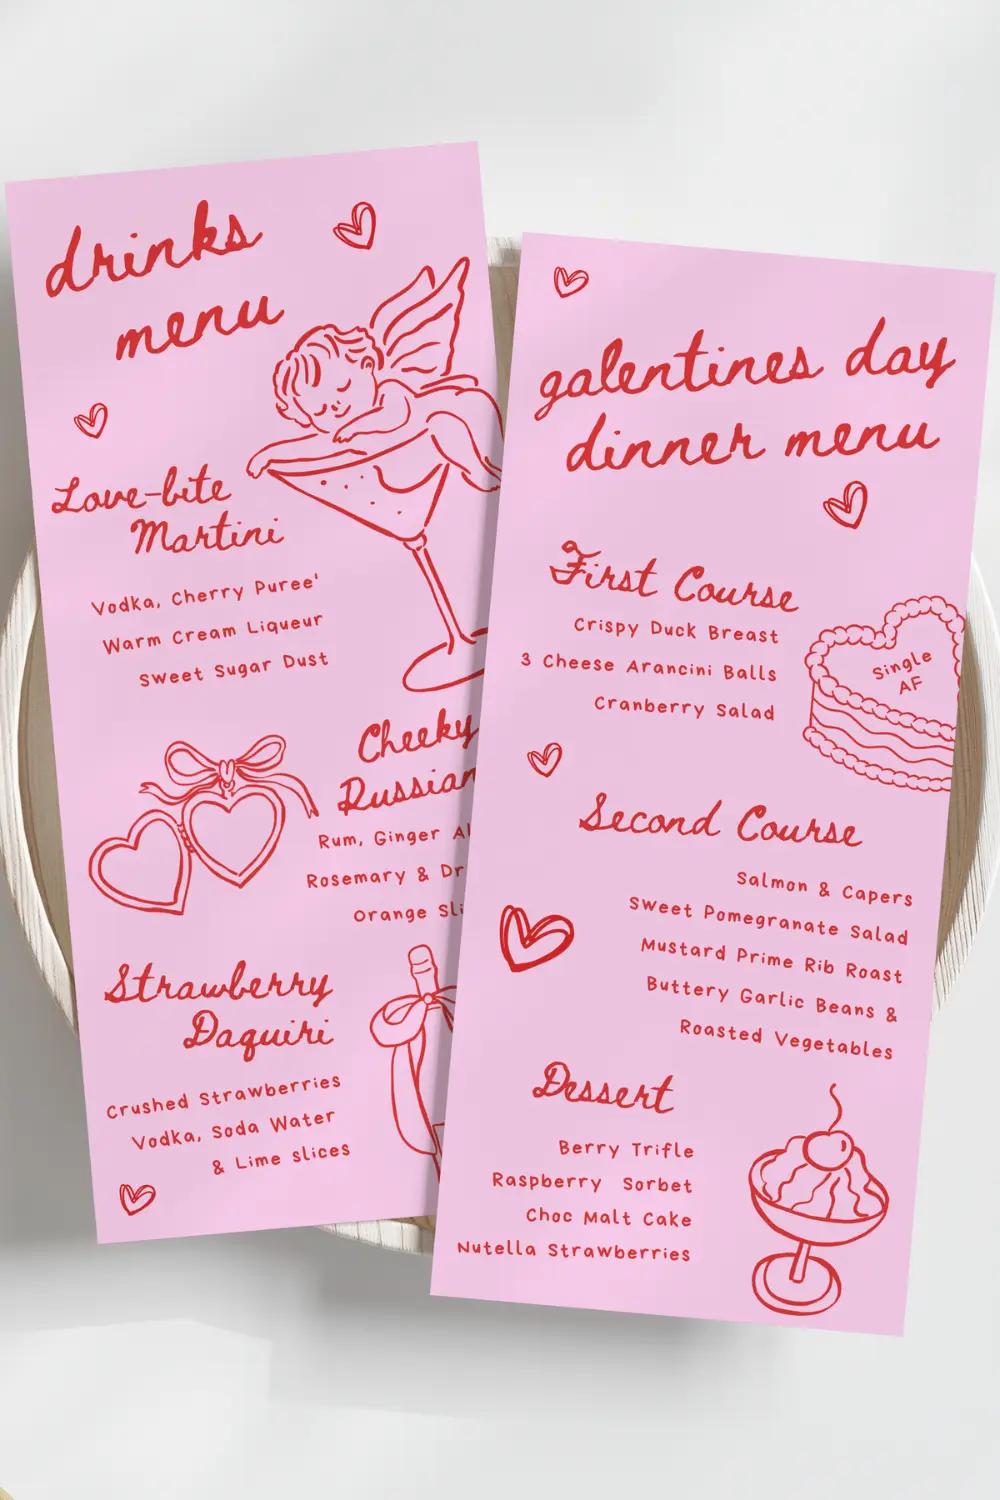 drinks
menu
Love-bite
Martini
Vodka, Cherry Puree'
Warm Cream Liqueur
Sweet Sugar Dust
Cheeky
Russian
Rum, Ginger
Rosemary &
Orange
Strawberry
Daquiri
Crushed Strawberries
Vodka, Soda Water
& Lime slices
galentines day
dinner menu
First Course
Crispy Duck Breast
3 Cheese Arancini Balls
Cranberry Salad
Single
AF
Second Course
Salmon & Capers
Sweet Pomegranate Salad
Mustard Prime Rib Roast
Buttery Garlic Beans &
Roasted Vegetables
Dessert
Berry Trifle
Raspberry Sorbet
Choc Malt Cake
Nutella Strawberries